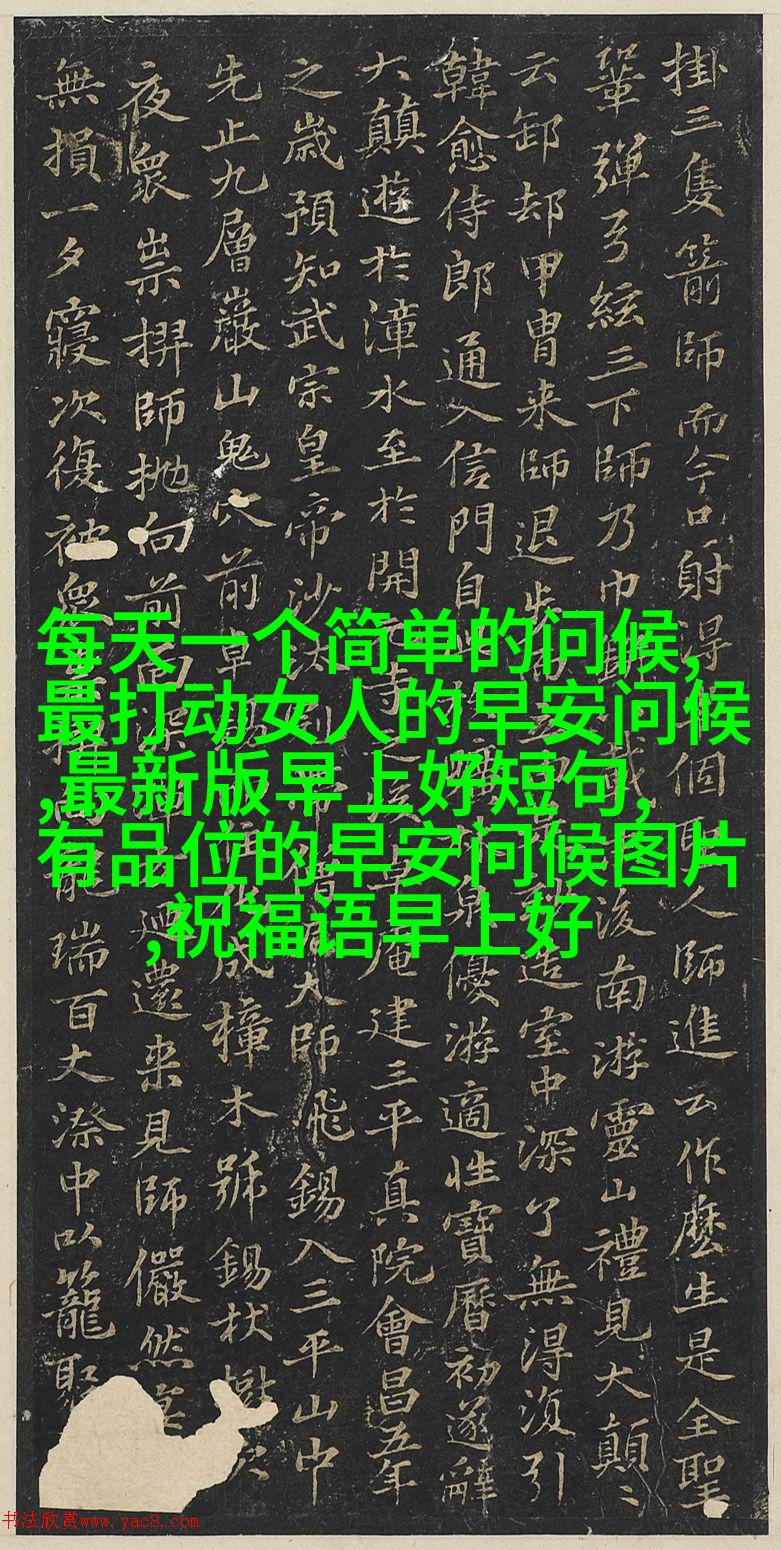 掛三隻箭師而今只射得個人師進云作麼生是全聖
鞏彈弓絃三下師乃巾戴後南游靈山禮見大顛〻
云卸却甲胄来師退步造室中深了無得湏引
韓愈侍郎通入信門自優游適性寶曆初遂辭
大顛遊於漳水至於開寺之後卓庵建三平真院會昌五年
之歲預知武宗皇帝沙汰大師飛錫入三平山中
先止九層巖山鬼穴前卓化成樟木號錫杖
夜衆祟摒師抛向前面深迴還来見師儼然
無損一夕寢次復被衆瑞百丈漈中以籠聚
每天一个简单的问候,
最打动女人的早安问候
,最新版早上好短句,
有品位的早安问候图片
,祝福语早上好
书法欣赏www.yac8.com